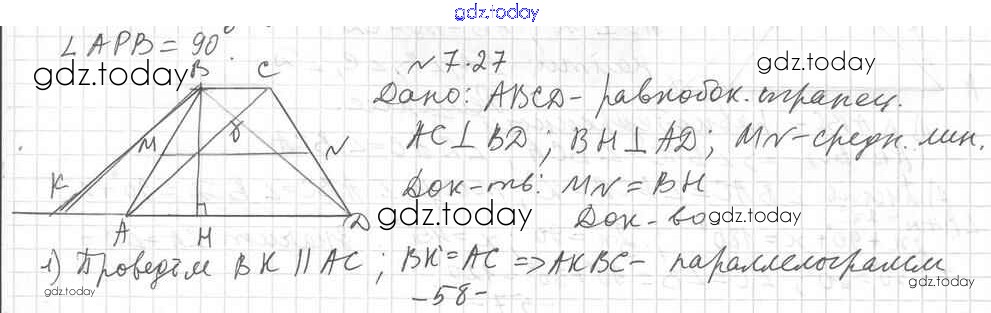 gdz.today
∠APB = 90°
gdz.today
№ 7.27
gdz.today
Дано: ABCD - равнобок. трапец.
AC ⊥ BD; BH ⊥ AD; MN - средн. лин.
Док-ть: MN = BH
Док-во
gdz.today
B C
M N
K A H D
1) Проведём BK || AC; BK = AC => AKBC - параллелограмм
gdz.today
gdz.today
-58-